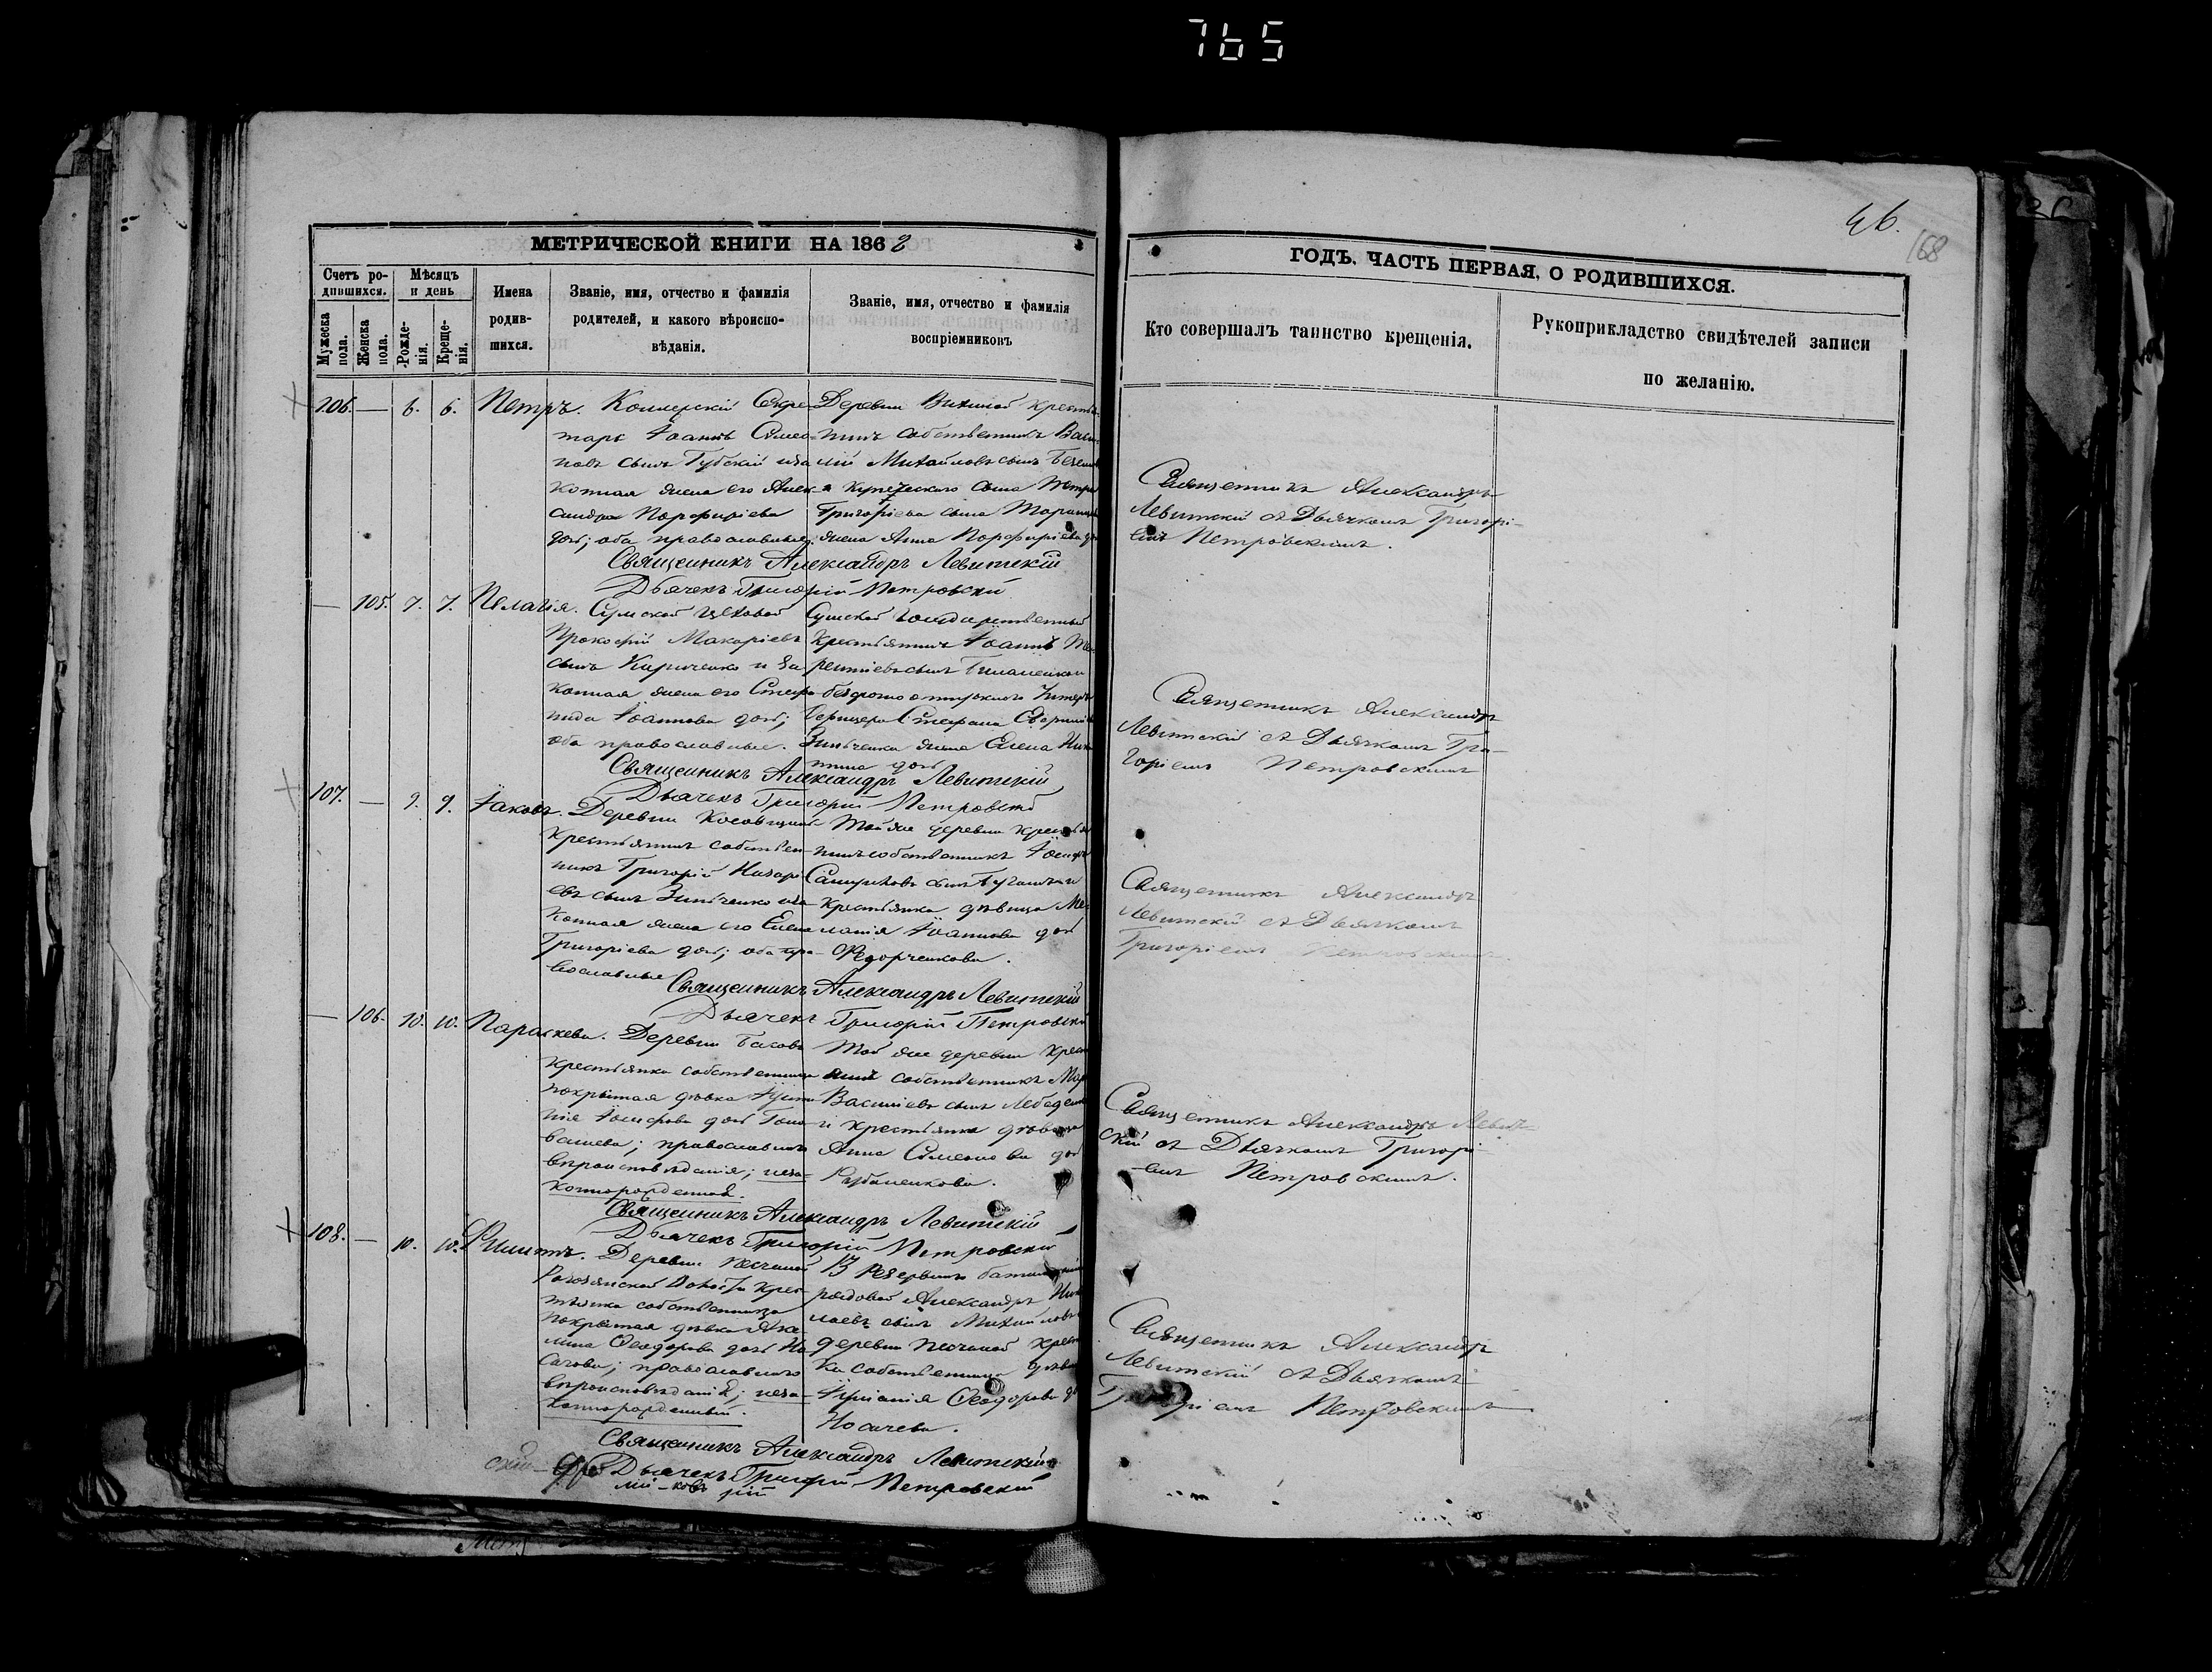 765
46.
168
МЕТРИЧЕСКОЙ КНИГИ НА 1868
ГОДЪ, ЧАСТЬ ПЕРВАЯ, О РОДИВШИХСЯ.
Счетъ ро-
дившихся.
Мѣсяцъ
и день
Мужеска
пола.
Женска
пола.
Рожде-
нія.
Креще-
нія.
Имена
родив-
шихся.
Званіе, имя, отчество и фамилія
родителей, и какого вѣроиспо-
вѣданія.
Званіе, имя, отчество и фамилія
воспріемниковъ
Кто совершалъ таинство крещенія.
Рукоприкладство свидѣтелей записи
по желанію.
106. — 6. 6. Петръ.
Секре-
тарь Іоаннъ Симео-
новъ сынъ Губскій и за
конная жена его Алек-
сандра Порфиріева
доч; оба православные.
Деревни крестья
нинъ собственникъ Васи
лій Михайловъ сынъ
и купеческаго сына Петра
Григоріева сына
жена Анна Порфиріева до
Священникъ Александръ Левитскій
Дьячекъ Григорій Петровскій
Священникъ Александръ
Левитскій съ Дьячкомъ Григорі-
емъ Петровскимъ.
— 105. 7. 7. Пелагія.
Сумской цеховой
Прокофій Макаріевъ
сынъ Кириченко и за
конная жена его Стефа
нида Іоаннова доч;
оба православные.
Сумской государственный
крестьянинъ Іоаннъ Те
рентіевъ сынъ
Стефана
Зинченка жена Елена Ни
тина доч
Священникъ Александръ Левитскій
Дьячекъ Григорій Петровскій
Священникъ Александръ
Левитскій съ Дьячкомъ Гри-
горіемъ Петровскимъ
107. — 9. 9. Іаковъ.
Деревни Косовщины
крестьянинъ собствен-
никъ Григорій Назарі
евъ сынъ Зинченко и за
конная жена его Елена
Григоріева доч; оба пра-
вославные
Той же деревни крестья
нинъ собственникъ Іосифъ
сынъ
крестьянка дѣвица Ме
ланія Іоаннова доч
Федорченкова.
Священникъ Александръ Левитскій
Дьячекъ Григорій Петровскій
Священникъ Александръ
Левитскій съ Дьячкомъ
Григоріемъ Петровскимъ.
— 106. 10. 10. Параскева.
Деревни Басовъ
крестьянка собственница
покрытая дѣвка Іусти
нія Іосифова доч
православнаго
вѣроисповѣданія; неза-
коннорожденная.
Той же деревни крест
янинъ собственникъ
Васильевъ сынъ
и крестьянка дѣвица
Анна Симеонова доч
Рубаненкова.
Священникъ Александръ Левитскій
Дьячекъ Григорій Петровскій
Священникъ Александръ Левит-
скій съ Дьячкомъ Григорі
-емъ Петровскимъ.
108. — 10. 10. Филиппъ.
Деревни Песчаной
крес
тьянка собственница
покрытая дѣвка Аку
лина Феодорова доч Но
сачова; православнаго
вѣроисповѣданія; неза-
коннорожденный.
рядовой Александръ Ник
лаевъ сынъ Михайловъ
деревни Песчаной крестьян
ка собственница дѣви
Іуліанія Феодорова до
Носачева.
Священникъ Александръ Левитскій
Дьячекъ Григорій Петровскій
Священникъ Александръ
Левитскій съ Дьячкомъ
Григоріемъ Петровскимъ